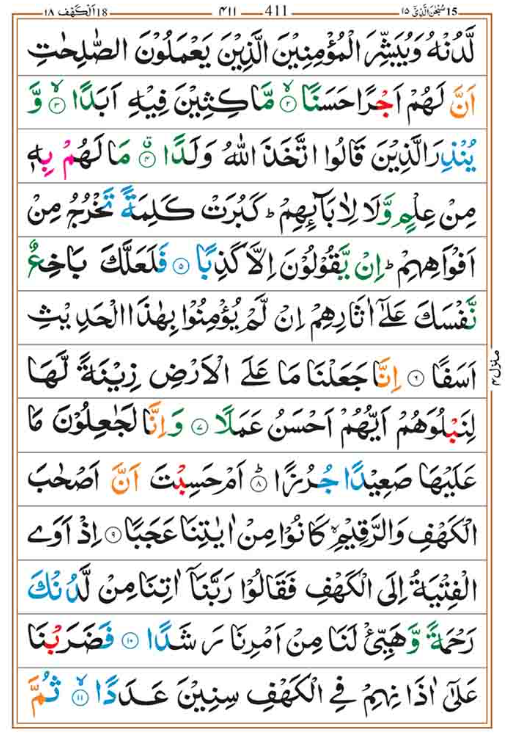 18 اَلْكَهْف ١٨ ٤١١ — 411 15 سُبْحٰنَ الَّذِيْٓ ١٥
لَّدُنْهُ وَيُبَشِّرَ الْمُؤْمِنِيْنَ الَّذِيْنَ يَعْمَلُوْنَ الصّٰلِحٰتِ
اَنَّ لَهُمْ اَجْرًا حَسَنًا ۙ‏﴿٢﴾ مَّاكِثِيْنَ فِيْهِ اَبَدًا ۙ‏﴿٣﴾ وَّ
يُنْذِرَ الَّذِيْنَ قَالُوا اتَّخَذَ اللّٰهُ وَلَدًا ۗ‏﴿٤﴾ مَا لَهُمْ بِهٖ
مِنْ عِلْمٍ وَّلَا لِاٰبَآئِهِمْ ؕ كَبُرَتْ كَلِمَةً تَخْرُجُ مِنْ
اَفْوَاهِهِمْ ؕ اِنْ يَّقُوْلُوْنَ اِلَّا كَذِبًا ‏﴿٥﴾ فَلَعَلَّكَ بَاخِعٌ
نَّفْسَكَ عَلٰٓى اٰثَارِهِمْ اِنْ لَّمْ يُؤْمِنُوْا بِهٰذَا الْحَدِيْثِ
اَسَفًا ‏﴿٦﴾ اِنَّا جَعَلْنَا مَا عَلَى الْاَرْضِ زِيْنَةً لَّهَا
لِنَبْلُوَهُمْ اَيُّهُمْ اَحْسَنُ عَمَلًا ‏﴿٧﴾ وَاِنَّا لَجٰعِلُوْنَ مَا
عَلَيْهَا صَعِيْدًا جُرُزًا ؕ‏﴿٨﴾ اَمْ حَسِبْتَ اَنَّ اَصْحٰبَ
الْكَهْفِ وَالرَّقِيْمِ ۙ كَانُوْا مِنْ اٰيٰتِنَا عَجَبًا ‏﴿٩﴾ اِذْ اَوَى
الْفِتْيَةُ اِلَى الْكَهْفِ فَقَالُوْا رَبَّنَاۤ اٰتِنَا مِنْ لَّدُنْكَ
رَحْمَةً وَّهَيِّئْ لَنَا مِنْ اَمْرِنَا رَشَدًا ‏﴿١٠﴾ فَضَرَبْنَا
عَلٰٓى اٰذَانِهِمْ فِى الْكَهْفِ سِنِيْنَ عَدَدًا ۙ‏﴿١١﴾ ثُمَّ
منزل ٤